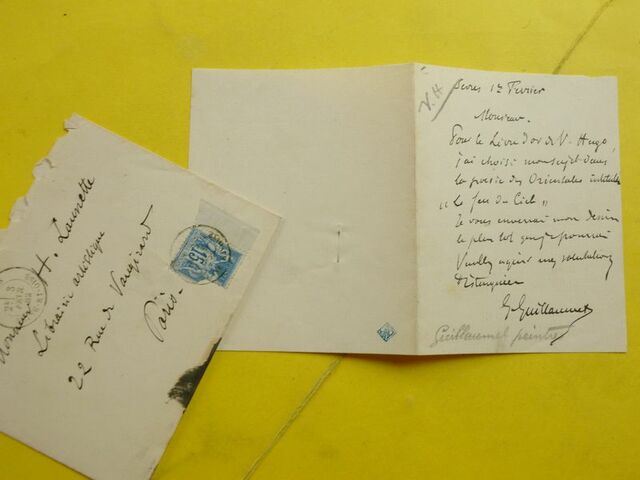 V. H
Sevres 1er Fevrier
Monsieur.
Pour le Livre d'or de V. Hugo,
j'ai choisi mon sujet dans
la poesie des Orientales intitulée
" Le feu du Ciel "
Je vous enverrai mon dessin
le plus tot que je pourrai
Veuillez agréer mes salutations
distinguées
G. Guillaumet
Guillaumet peintre
Monsieur H. Launette
Librairie artistique
22 Rue de Vaugirard
Paris
15